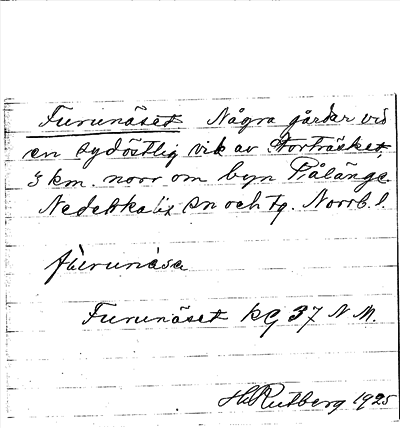 Furunäset Några gårdar vid
en sydöstlig vik av Storträsket,
3 km. norr om byn Pålänge
Nederkalix sn och tg. Norrb. l.
Furunäset kg 37 N M.
H. Rutberg 1925